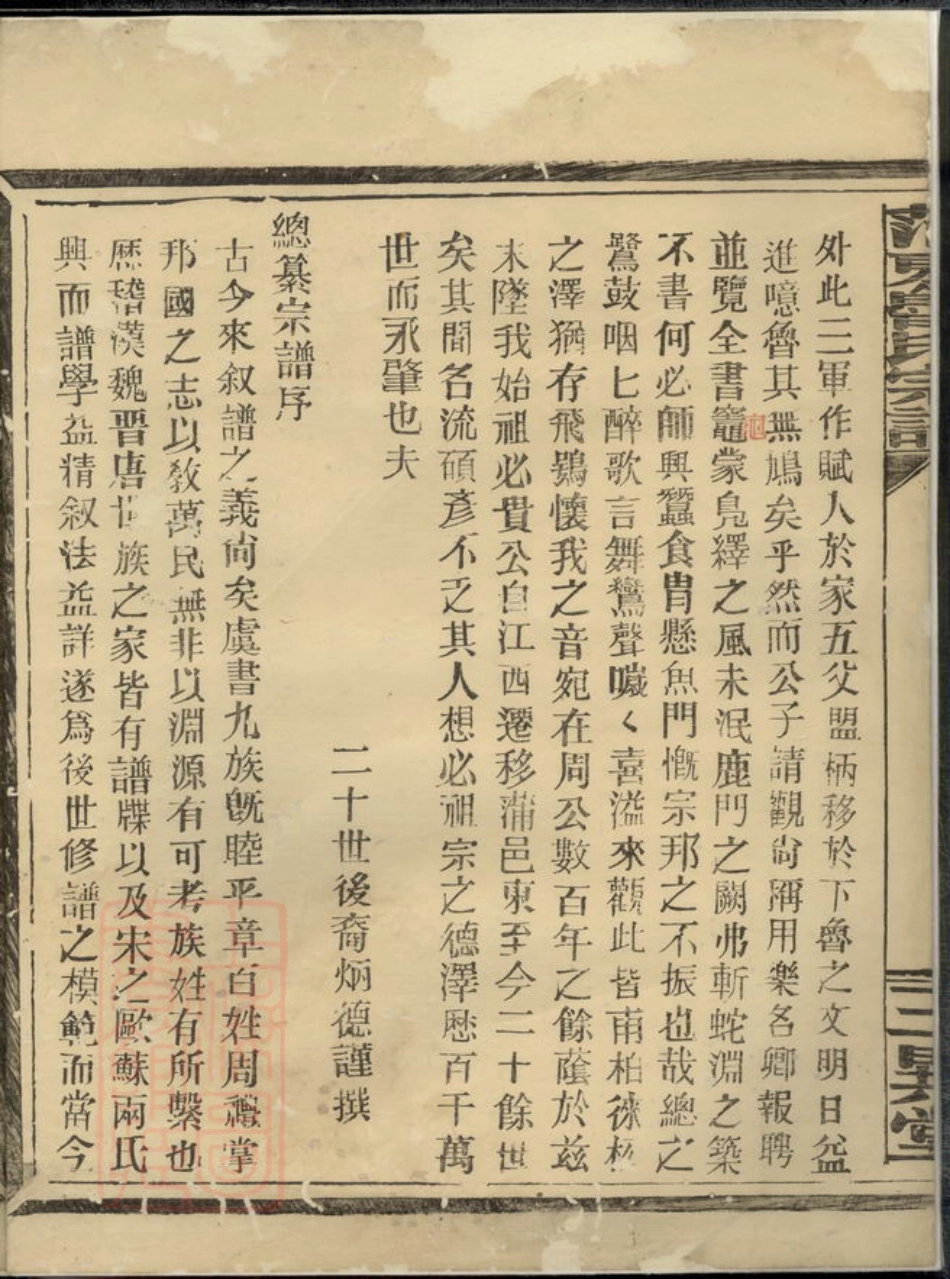 外此三軍作賦人於家五父盟柄移於下魯之文明日益
進噫魯其無鳩矣乎然而公子請觀尙稱用樂名卿報聘
並覽全書龜蒙鳧繹之風未泯鹿門之闕弗斬蛇淵之築
不書何必師興蠶食胄懸魚門慨宗邦之不振也哉總之
鷺鼓咽匕醉歌言舞鸞聲噦〱喜溢來觀此皆甫柏徠松
之澤猶存飛鴞懷我之音宛在周公數百年之餘蔭於兹
未墜我始祖必貴公自江西遷移蒲邑東至今二十餘世
矣其間名流碩彥不乏其人想必祖宗之德澤歷百千萬
世而永肇也夫
二十世後裔炳德謹撰
總纂宗譜序
古今來叙譜之義尙矣虞書九族旣睦平章百姓周禮掌
邦國之志以敎萬民無非以淵源有可考族姓有所繫也
歷稽漢魏晋唐世族之家皆有譜牒以及宋之歐蘇兩氏
興而譜學益精叙法益詳遂爲後世修譜之模範而當今